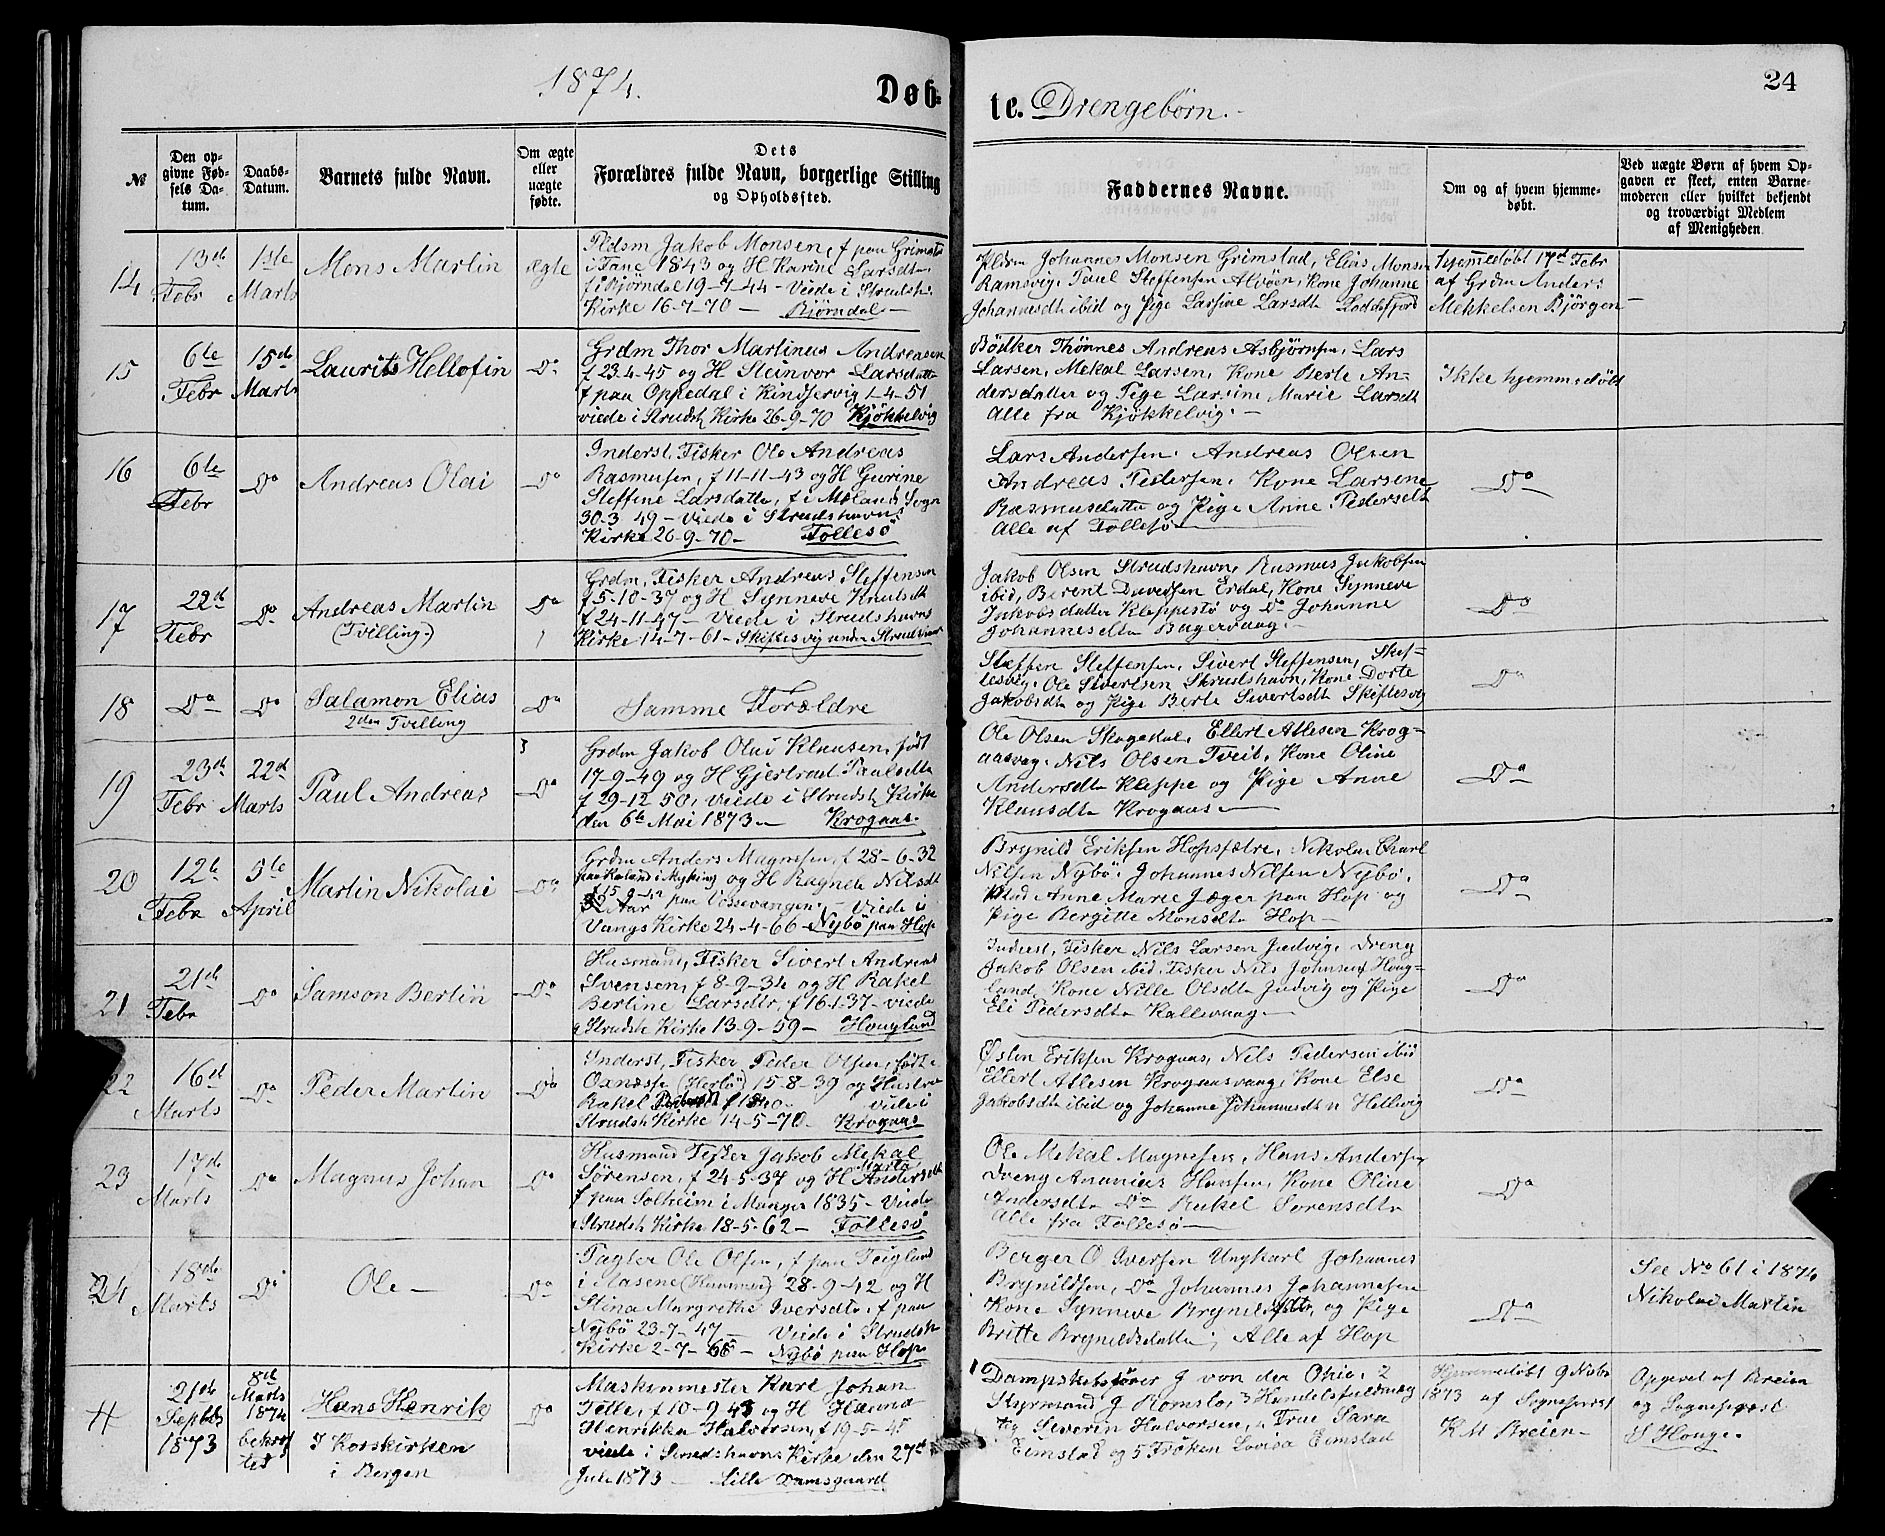 1874.
Døb-
te. Drengebørn.
24
№
Den op-
givne Fød-
sels Da-
tum.
Daabs-
Datum.
Barnets fulde Navn.
Om ægte
eller
uægte
fødte.
Dets
Forældres fulde Navn, borgerlige Stilling
og Opholdssted.
Faddernes Navne.
Om og af hvem hjemme-
døbt.
Ved uægte Børn af hvem Op-
gaven er skeet, enten Barne-
moderen eller hvilket bekjendt
og troværdigt Medlem
af Menigheden.
14
13de
Febr
1ste
Marts
Mons Martin
ægte
Pldsm Jakob Monsen, f paa Grimstad
i Fane 1843 og H Karine Larsdtr
f i Bjørndal 19-7-44 - Viede i Strudsh.
Kirke 16-7-70 - Bjørndal -
Pldsm Johannes Monsen Grimstad, Elias Monsen
Ramsvig, Paul Steffensen Alvøen, Kone Johanne
Johannesdtr ibid og Pige Larsine Larsdtr Loddefjord
Hjemmedøbt 17de Febr
af Grdm Anders
Mekkelsen Bjørgen
15
6te
Febr
15de
Marts
Laurits Hellofin
Do
Grdm Thor Martinus Andreasen
f 23-4-45 og H Steinvor Larsdatter
f paa Oppedal i Kindservig 1-4-51
viede i Strudsh Kirke 26-9-70 Kjøkkelvig
Bødker Thønnes Andreas Asbjørnsen, Lars
Larsen, Mekal Larsen, Kone Berte An-
dersdatter og Pige Larsine Marie Larsdtr
Alle fra Kjøkkelvig. -
Ikke hjemmedøbt
16
6te
Febr
Do
Andreas Olai
Do
Inderst, Fisker Ole Andreas
Rasmusen, f 11-11-43 og H Gurine
Steffine Larsdatter, f i Mølands Sogn
30-3 49 - Viede i Strudshavns
Kirke 26-9-70 - Follesø
Lars Andersen, Andreas Olsen
Andreas Pedersen, Kone Larsene
Rasmusdatter og Pige Anne Pedersdtr
Alle af Follesø -
Do
17
22de
Febr
Do
Andreas Martin
(Tvilling.)
Do
Grdm, Fisker Andreas Steffensen
f 5-10-37 og H Synneve Knutsdtr
f 24-11-47 - Viede i Strudshavns
Kirke 14-7-61 - Skiftesvig under Strudshavn
Jakob Olsen Strudshavn, Rasmus Jakobsen
ibid, Berent Davidsen Erdal, Kone Synneve
Jakobsdatter Kleppestø og Do Johanne
Johannesdtr Bagervaag. -
Do
18
Do
Do
Salamon Elias
2den Tvilling
Do
Samme Forældre
Steffen Steffensen, Sivert Steffensen, Skif-
tesvig, Ole Sivertsen Strudshavn, Kone Dorte
Jakobsdtr og Pige Berte Sivertsdtr Skiftesvig
Do
19
23de
Febr
22de
Marts
Paul Andreas
Do
Grdm Jakob Olai Klausen, født
17-9-49 og H Gjertrud Paulsdtr
f 29-12 50, viede i Strudsh Kirke
den 6te Mai 1873 - Krogaas.
Ole Olsen Skagedal, Ellert Atlesen Krog-
aasvaag, Nils Olsen Tveit, Kone Oline
Andersdtr Kleppe og Pige Anne
Klausdtr Krogaas -
Do
20
12te
Febr
5te
April
Martin Nikolai
Do
Grdm Anders Magnesen, f 28-6-32
og H Ragnele Nilsdtr
paa Vossevangen. - Viede i
Vangs Kirke 24-4-66 - Nybø paa Hop
Brynild Eriksen Hopssætre, Nikolai Charl
Nilsen Nybø, Johannes Nilsen Nybø,
Anne Marie Jæger paa Hop og
Pige Bergitte Monsdtr Hop -
Do
21
21de
Febr
Do
Samson Bertin
Do
Husmand, Fisker Sivert Andreas
Svensen, f 8-9-34 og H Rakel
Bertine Larsdtr, f 16-1-37 - viede
i Strudsh Kirke 13-9-59 - Hougland
Inderst, Fisker Nils Larsen Judvig, Dreng
Jakob Olsen ibid, Fisker Nils Johnsen Houg-
land, Kone Nille Olsdtr Judvig og Pige
Eli Pedersdtr Kallevaag -
Do
22
16de
Marts
Do
Peder Martin
Do
Inderst, Fisker Peder Olsen, født i
Oxnæsse (Herlø) 15-8-39 og Hustru
Rakel f 1840 - viede i
Strudsh Kirke 14-5-70 - Krogaas
Østen Eriksen Krogaas, Nils Pedersen ibid
Ellert Atlesen Krogaasvaag, Kone Else
Jakobsdtr ibid og Johanne Johannesdtr Hellevig
Do
23
17de
Marts
Do
Magnus Johan
Do
Husmand Fisker Jakob Mekal
Sørensen, f 24-5-37 og H Marta Andersdtr
f paa Solheim i Manger 1835 - Viede
i Strudsh Kirke 18-5-62 - Follesø
Ole Mekal Magnesen, Hans Andersen,
Dreng Ananias Hansen, Kone Oline
Andersdtr Do Rakel Sørensdtr
Alle fra Follesø -
Do
24
18de
Marts
Do
Ole -
Do
Pagter Ole Olsen, f paa Teigland
i Aasene (Hammer) 28-9-42 og H
Stina Margrethe Iversdtr, f paa
Nybø 23-7-47 - Viede i Strudsh
Kirke 2-7-68 - Nybø paa Hop
Berger O Iversen Ungkarl Johannes
Brynildsen, Do Johannes Johannesen
Kone Synneve Brynildsdtr, og Pige
Britte Brynildsdatter; Alle af Hop
Do
See No 61 i 1874
Nikolai Martin
21de
Septbr
1873
8de
Marts
1874
bekræf
tet
Hans Henrik
I Korskirken
i Bergen
Do
Maskinmester Karl Johan
Totte, f 10-9 43 og H Hanna
Henrikka Halvorsen, f 19-5-45
viede i Strudshavns Kirke den 27de
Juli 1873 - Lille Damsgaard
1 Dampskibsfører G von der Ohe, 2
Styrmand G Romslo, 3 Handelsfuldmæg
tig Severin Halvorsen, 4 Frue Sara
Eimstad og 5 Frøken Lovisa Eimstad
Hjemmedøbt 9 Novbr
1873 af Sognepræst
K M Breien -
Opgevet af Breien
og Sognepræst
S Houge.